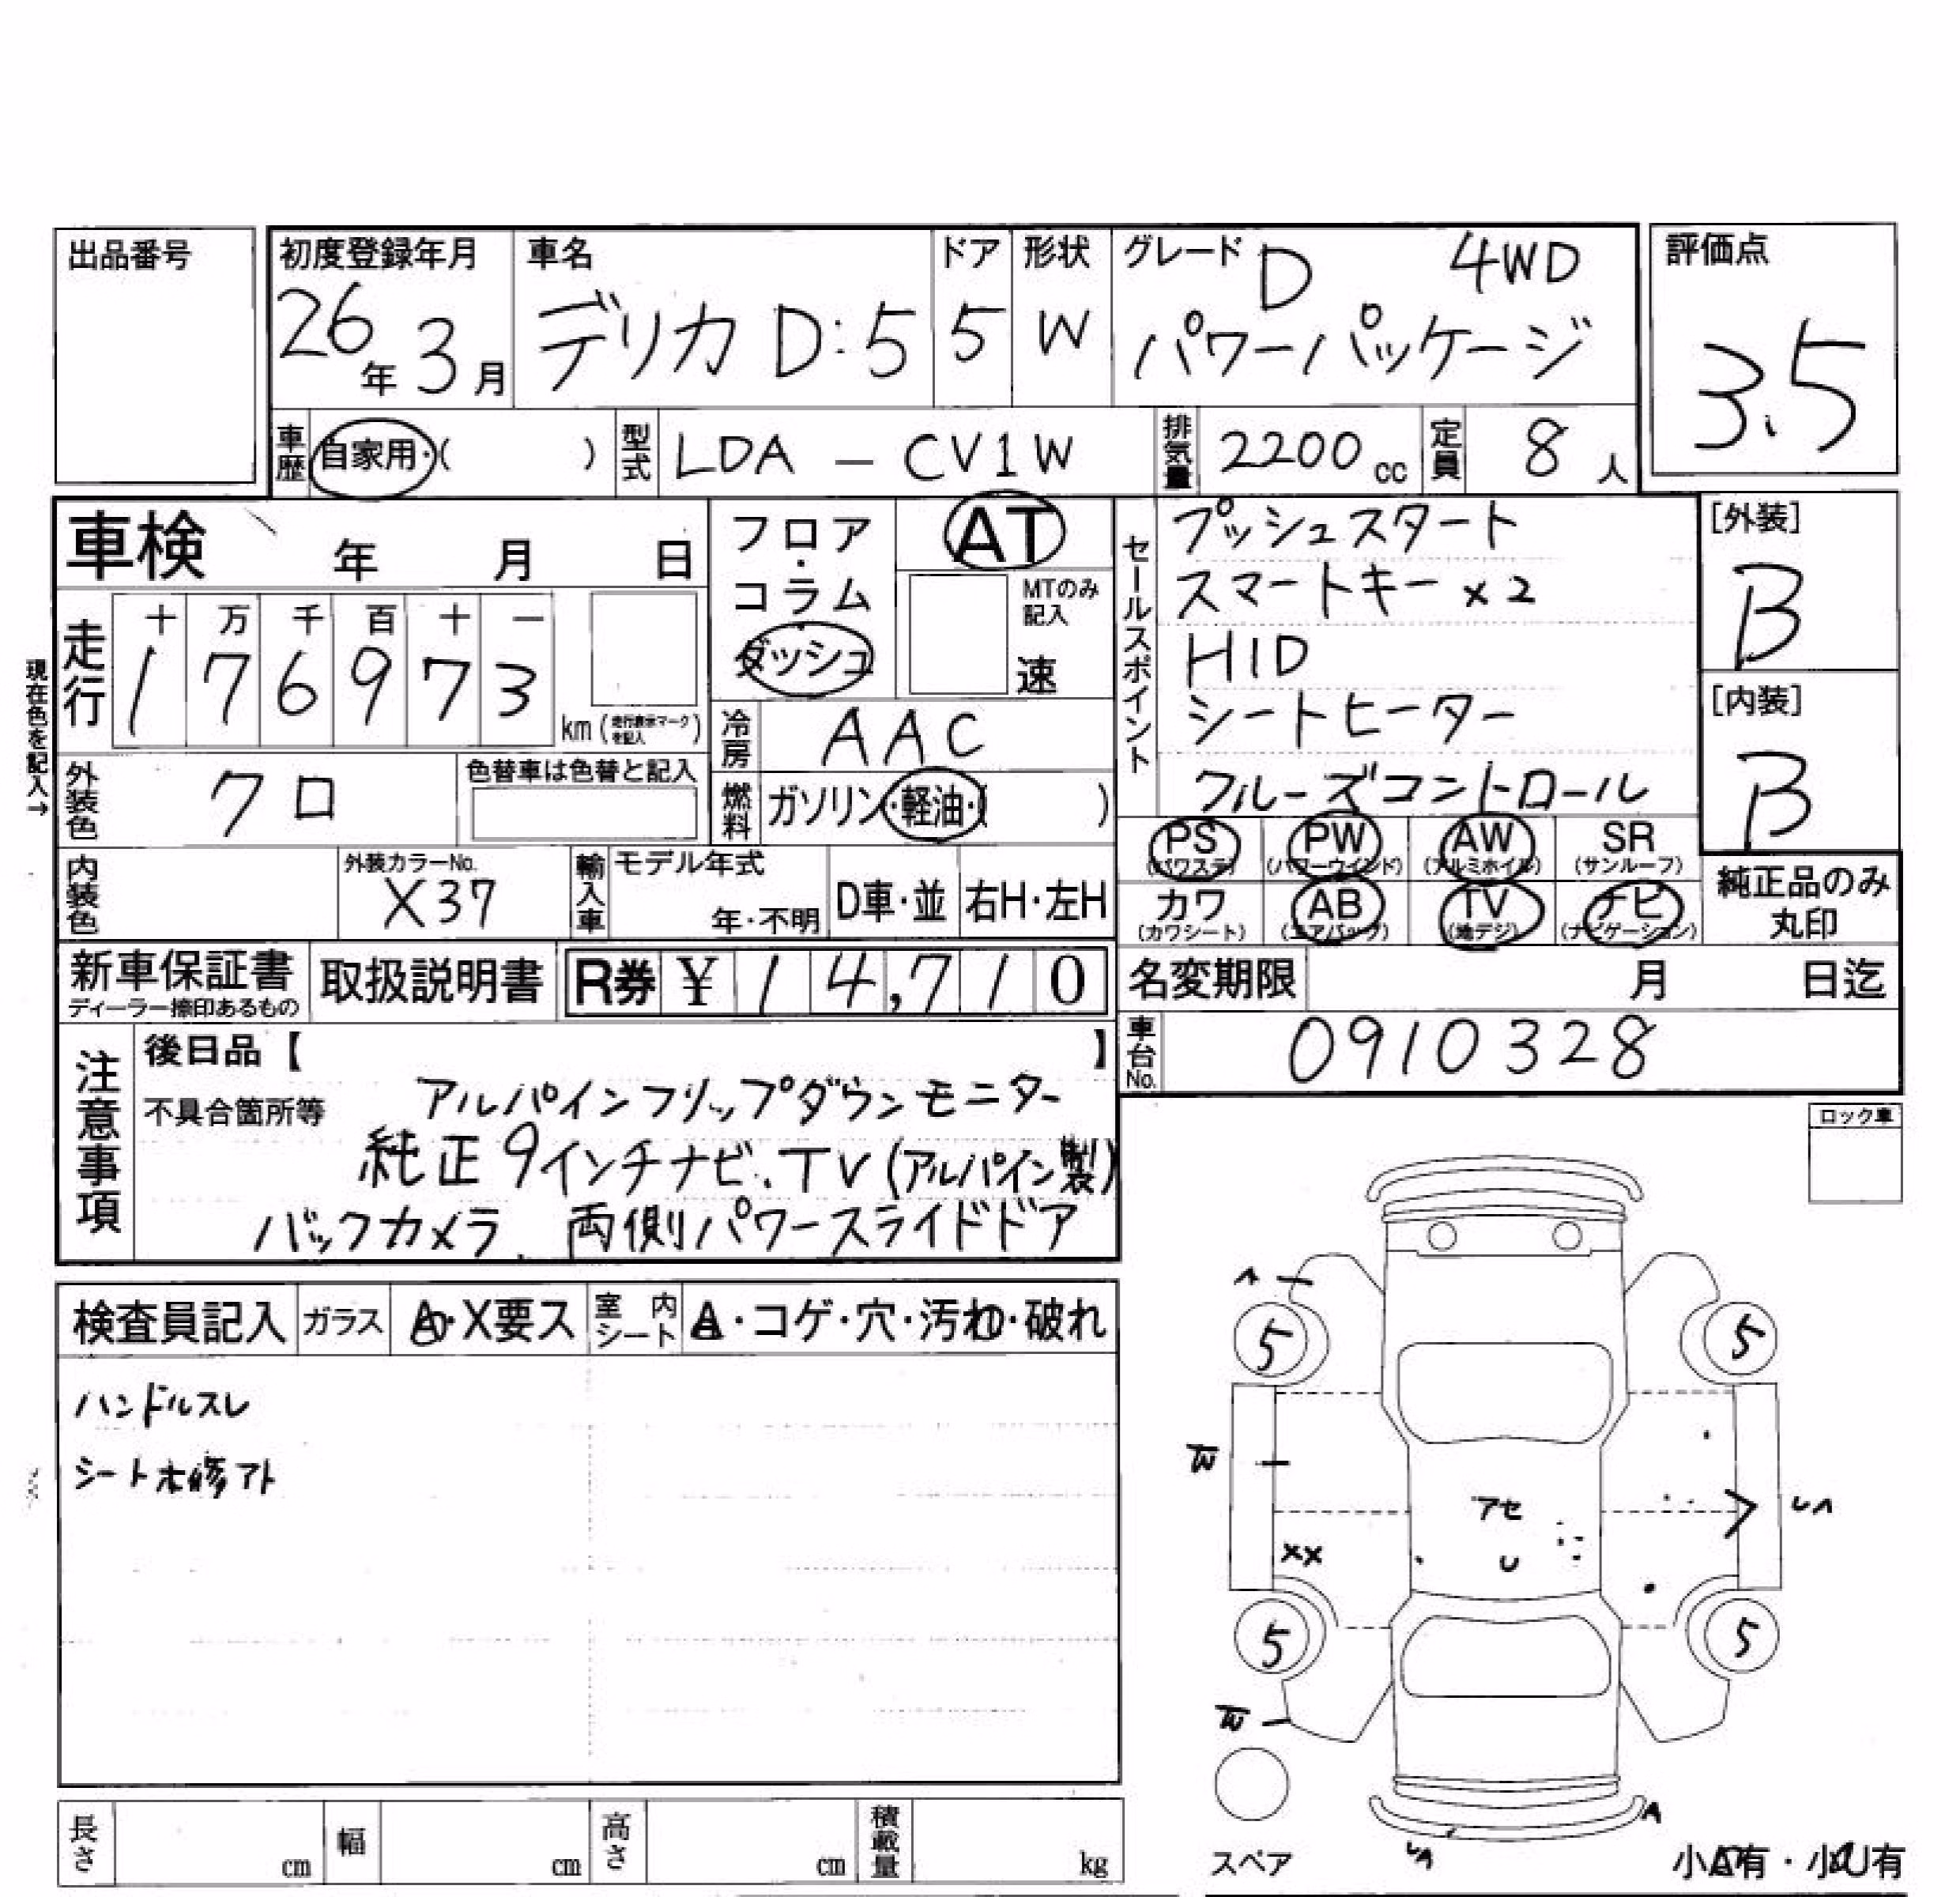 出品番号
初度登録年月 車名 ドア 形状 グレード 評価点
D 4WD
26年3月 デリカD:5 5 W パワーパッケージ
3.5
車歴 自家用・( ) 型式 LDA - CV1W 排気量 2200cc 定員 8人
車検 年 月 日
フロア・コラム ダッシュ
AT
MTのみ記入
速
現在色を記入→
走行
十 万 千 百 十 一
1 7 6 9 7 3
km(走行表示マークを記入)
冷房 AAC
外装色 クロ 色替車は色替と記入
燃料 ガソリン・軽油・( )
内装色 外装カラーNo. X37
輸入車 モデル年式 年・不明 D車・並 右H・左H
セールスポイント
プッシュスタート
スマートキー×2
HID
シートヒーター
クルーズコントロール
[外装]
B
[内装]
B
PS(パワステ) PW(パワーウインド) AW(アルミホイル) SR(サンルーフ)
カワ(カワシート) AB(エアバック) TV(地デジ) ナビ(ナビゲーション)
純正品のみ丸印
新車保証書 ディーラー捺印あるもの 取扱説明書 R券 ¥ 14,710
名変期限 月 日迄
車台No. 0910328
注意事項
後日品【 】
不具合箇所等 アルパインフリップダウンモニター
純正9インチナビ、TV(アルパイン製)
バックカメラ、両側パワースライドドア
ロック車
検査員記入 ガラス A・X要ス 室内シート A・コゲ・穴・汚れ・破れ
ハンドルスレ
5 5
W
アセ
XX U
5 5
W
A
スペア
小A有・小U有
長さ cm 幅 cm 高さ cm 積載量 kg